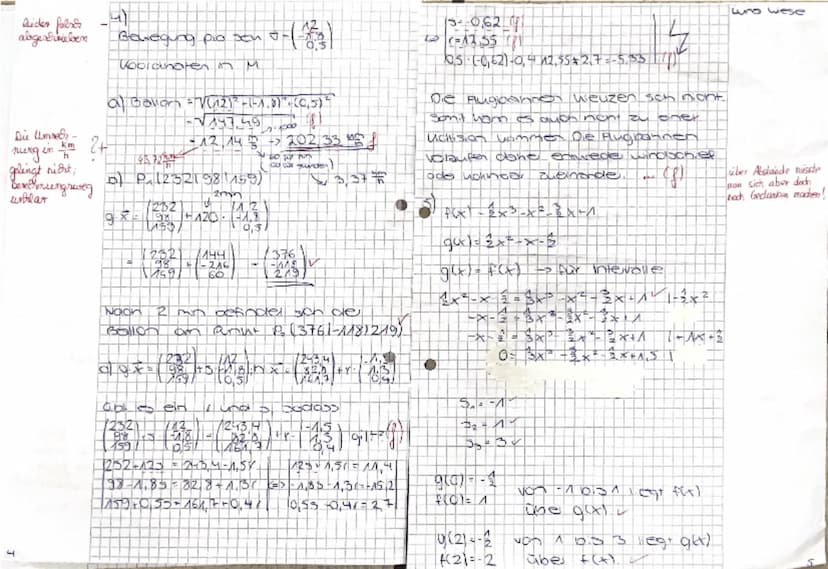 4)
Bewegung pro sec v = (12 -1,8 0,5)
Koordinaten in M
Leider falsch abgeschrieben
a) Ballon = √(12)² + (-1,8)² + (0,5)²
= √147,49 (f)
= 12,14 → 202,33 f
43,7
Die Umrechnung in km/h gelingt nicht;
3,37
b) P₁ (232|98|159)
2min
g: x = (232 98 159) + 120 · (1,2 -1,8 0,5)
= (232 98 159) + (144 -216 60) = (376 -118 219) ✓
Nach 2 min befindet sich der
Ballon am Punkt P₂ (376|-118|219) ✓
g: x = (232 98 159) + s (12 -1,8 0,5) h: x = (243,4 82,8 161,7) + r · (-1,5 1,3 0,4)
Gibt es ein r und s, sodass
(232 98 159) + s (12 -1,8 0,5) = (243,4 82,8 161,7) + r (-1,5 1,3 0,4) gilt? (f)
232 + 12s = 243,4 - 1,5r | 12s + 1,5r = 11,4
98 - 1,8s = 82,8 + 1,3r <=> -1,8s - 1,3r = -15,2
159 + 0,5s = 161,7 + 0,4r | 0,5s - 0,4r = 2,7
4
s = -0,62 (f)
r = 12,55 (f)
0,5 · (-0,62) - 0,4 · 12,55 ≠ 2,7 = -5,33 (f)
Die Flugbahnen kreuzen sich nicht.
Somit kann es auch nicht zu einer
Kollision kommen. Die Flugbahnen
verlaufen daher entweder windschief
oder zueinander. ... (f)
über Abstände müsste man sich aber doch noch Gedanken machen!
5)
f(x) = 1/3x³ - x² - 3/2x + 1
g(x) = 1/2x² - x - 1/2
g(x) = f(x) → für Intervalle
1/2x² - x - 1/2 = 1/3x³ - x² - 3/2x + 1 ✓ | -1/2x²
-x - 1/2 = 1/3x³ - 3/2x² - 3/2x + 1
-x - 1/2 = 1/3x³ - 3/2x² - 3/2x + 1 | + 1x + 1/2
0 = 1/3x³ - 3/2x² - 1/2x + 1,5 |
S₁ = -1 ✓
S₂ = 1 ✓
S₃ = 3 ✓
g(0) = -1/2
f(0) = 1
von -1 bis 1 liegt f(x)
über g(x). ✓
g(2) = -1/2
f(2) = -2
von 1 bis 3 liegt g(x)
über f(x). ✓
5